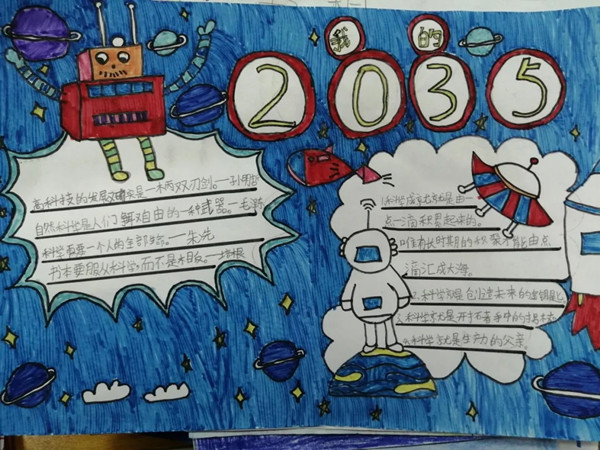 我的
2035
高科技的发展确实是一柄双刃剑。
自然科学是人们争取自由的一种武器。—毛泽
科学需要一个人的全部
书本要服从科学,而不是相反。—培根
科学成就是由一
点一滴积累起来的。
唯有长时期的积聚才能由点
滴汇成大海。
2.科学是创造未来的
3.科学就是
4.科学就是生动的父亲。